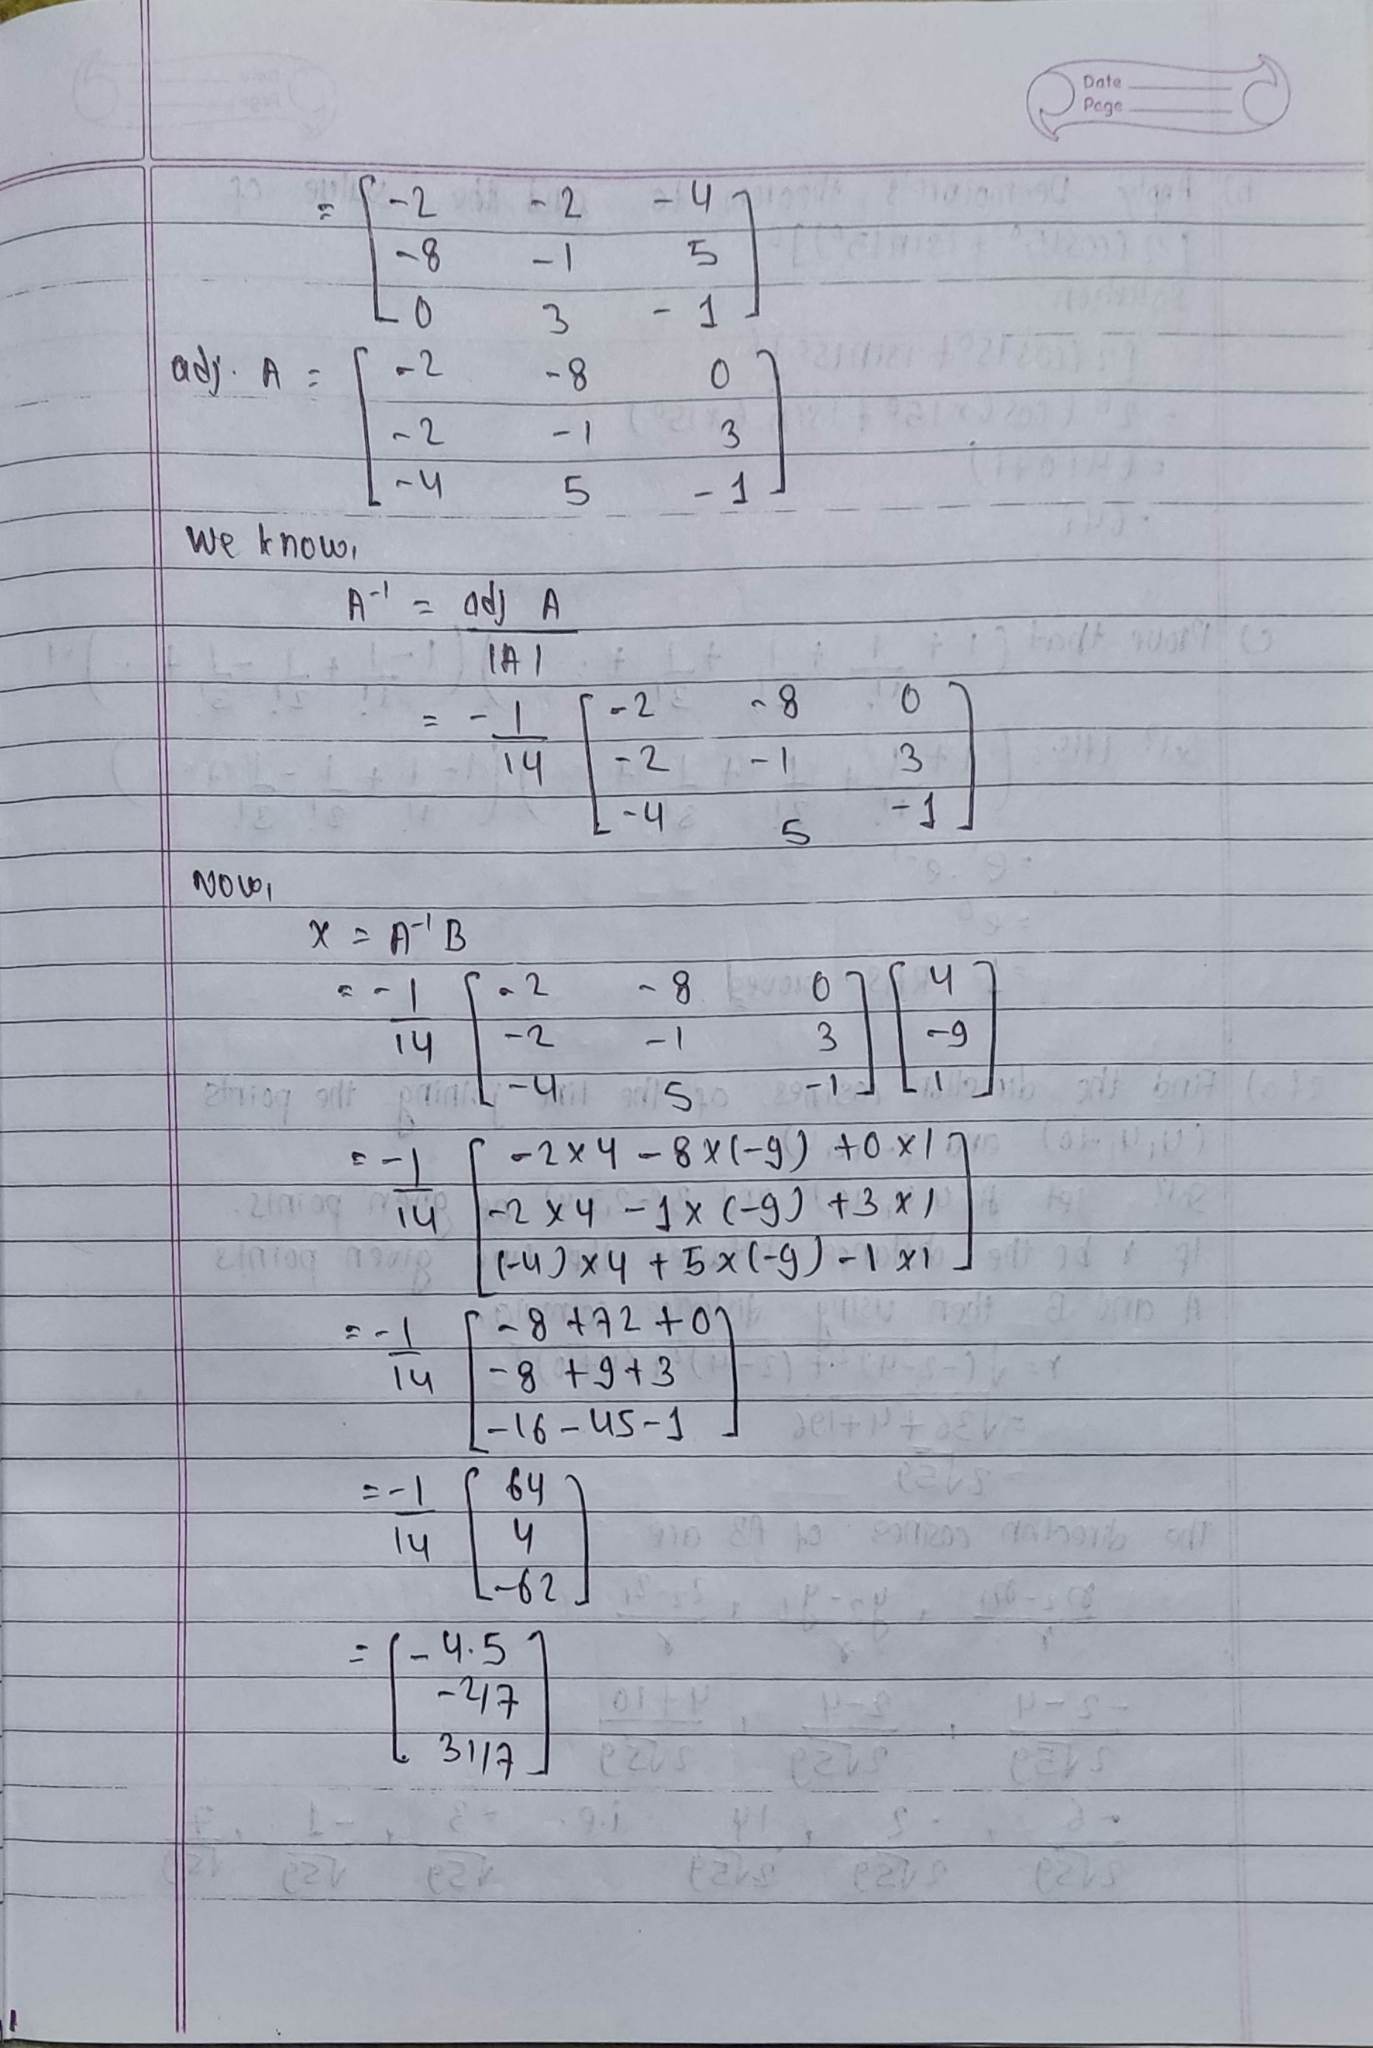 Date
Page
= [ -2 -2 -4
-8 -1 5
0 3 -1 ]
adj. A = [ -2 -8 0
-2 -1 3
-4 5 -1 ]
We know,
A⁻¹ = adj A
|A|
= -1/14 [ -2 -8 0
-2 -1 3
-4 5 -1 ]
Now,
x = A⁻¹ B
= -1/14 [ -2 -8 0 ] [ 4
-2 -1 3 -9
-4 5 -1 ] 1 ]
= -1/14 [ -2×4 -8×(-9) +0×1
-2×4 -1×(-9) +3×1
(-4)×4 + 5×(-9) -1×1 ]
= -1/14 [ -8+72+0
-8+9+3
-16-45-1 ]
= -1/14 [ 64
4
-62 ]
= [ -4.5
-2/7
31/7 ]